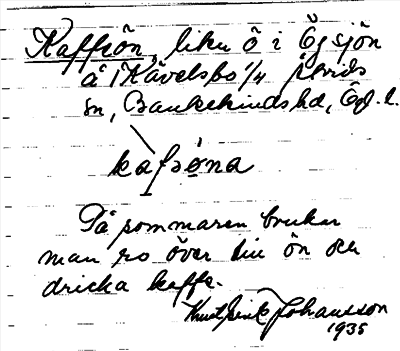 Kaffeön, liten ö i Ögsjön
å Kävelsbo 1/4 Åtvids
sn, Bankekinds hd, Ög. l.
kafsöna
På sommaren brukar
man ro över till ön och
dricka kaffe.
Johansson
1935